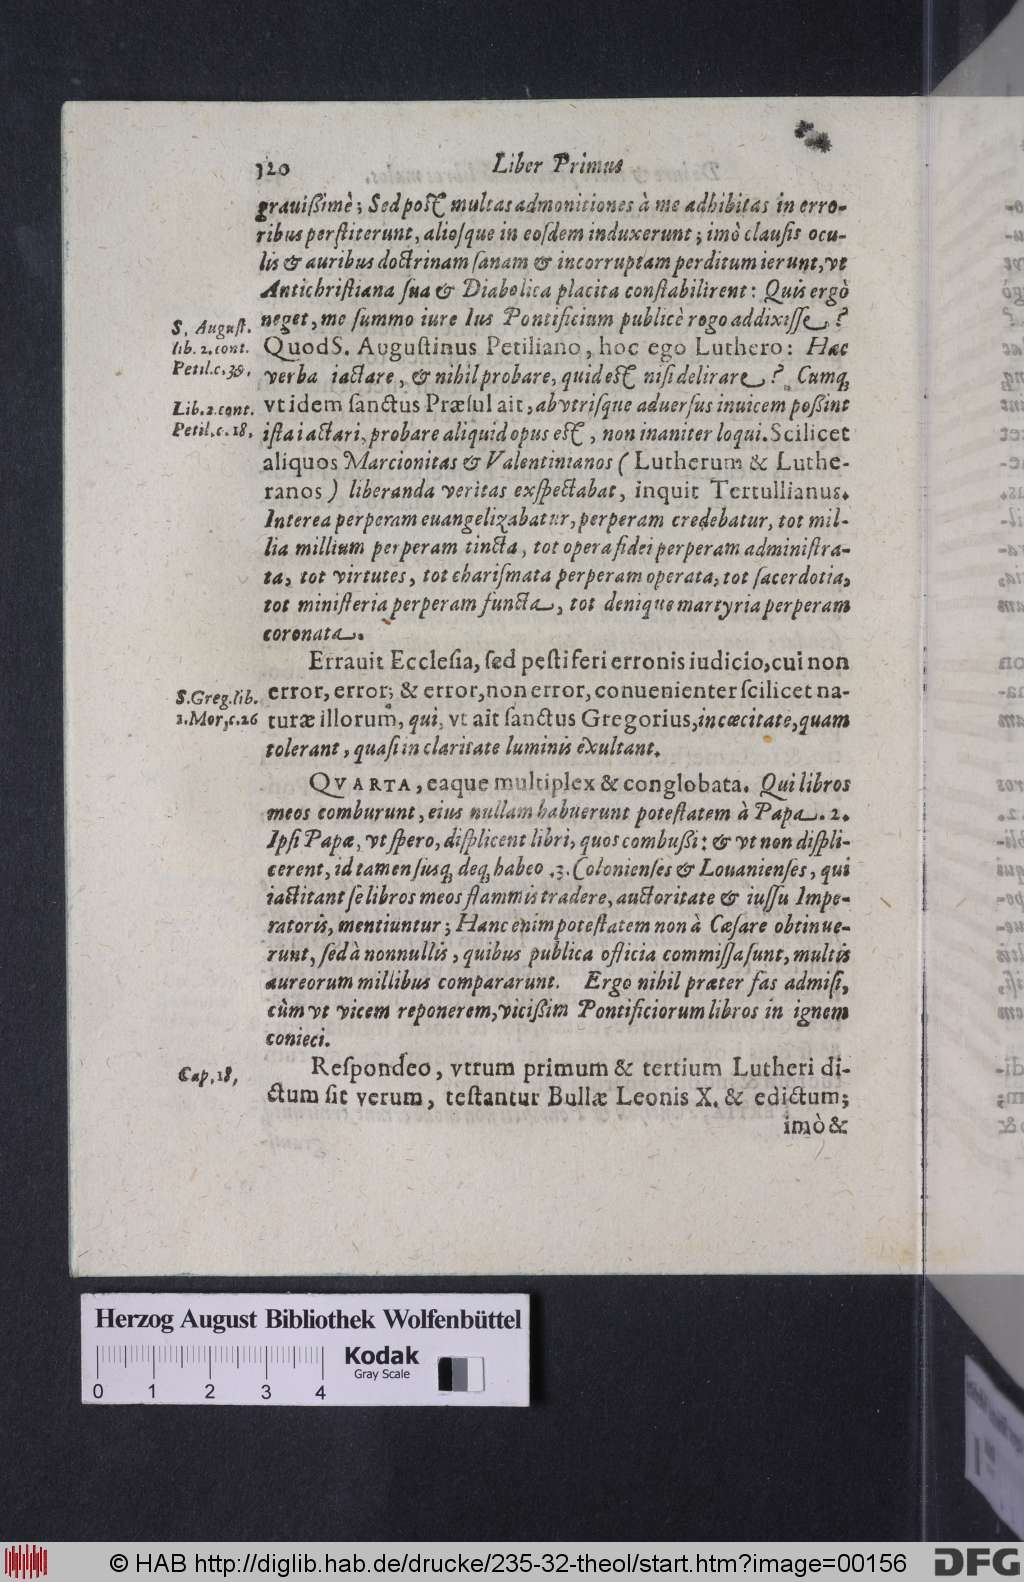 120 Liber Primus
grauißimè; Sed post multas admonitiones à me adhibitas in erro-
ribus perstiterunt, aliosque in eosdem induxerunt; imò clausis ocu-
lis & auribus doctrinam sanam & incorruptam perditum ierunt, vt
Antichristiana sua & Diabolica placita constabilirent: Quis ergò
neget, me summo iure Ius Pontificium publicè rogo addixisse?
S. August.
lib. 2. cont.
Petil. c. 39.
Quod S. Augustinus Petiliano, hoc ego Luthero: Hæc
verba iactare, & nihil probare, quid est nisi delirare? Cumq́;
Lib. 2 cont.
Petil, c. 18,
vt idem sanctus Præsul ait, ab vtrisque aduersus inuicem poßint
ista iactari, probare aliquid opus est, non inaniter loqui. Scilicet
aliquos Marcionitas & Valentinianos (Lutherum & Luthe-
ranos) liberanda veritas exspectabat, inquit Tertullianus.
Interea perperam euangelizabatur, perperam credebatur, tot mil-
lia millium perperam tincta, tot opera fidei perperam administra-
ta, tot virtutes, tot charismata perperam operata, tot sacerdotia,
tot ministeria perperam functa, tot denique martyria perperam
coronata.
Errauit Ecclesia, sed pestiferi erronis iudicio, cui non
S. Greg. lib.
1. Mor, c. 26
error, error; & error, non error, conuenienter scilicet na-
turæ illorum, qui, vt ait sanctus Gregorius, in cæcitate, quam
tolerant, quasi in claritate luminis exultant.
QVARTA, eaque multiplex & conglobata. Qui libros
meos comburunt, eius nullam habuerunt potestatem à Papa. 2.
Ipsi Papæ, vt spero, displicent libri, quos combußi: & vt non displi-
cerent, id tamen susq́; deq́; habeo. 3. Colonienses & Louanienses, qui
iactitant se libros meos flammis tradere, auctoritate & iussu Impe-
ratoris, mentiuntur; Hanc enim potestatem non à Cæsare obtinue-
runt, sed à nonnullis, quibus publica officia commissa sunt, multis
aureorum millibus compararunt. Ergo nihil præter fas admisi,
cùm vt vicem reponerem, vicißim Pontificiorum libros in ignem
conieci.
Cap, 18,
Respondeo, vtrum primum & tertium Lutheri di-
ctum sit verum, testantur Bullæ Leonis X. & edictum;
imò &
Herzog August Bibliothek Wolfenbüttel
0 1 2 3 4
Kodak
Gray Scale
© HAB http://diglib.hab.de/drucke/235-32-theol/start.htm?image=00156
DFG